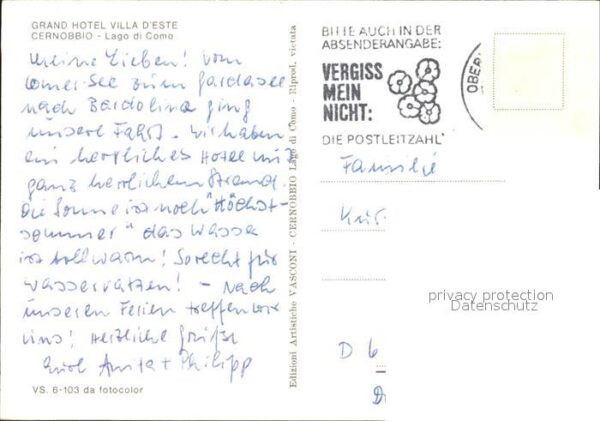 GRAND HOTEL VILLA D'ESTE
CERNOBBIO - Lago di Como
Meine Lieben! Vom
Comer-See zum Gardasee
nach Bardolino ging
unsere Fahrt. Wir haben
ein herrliches Hotel mit
ganz herrlichem Strand.
Die Sonne ist noch "Höchst-
sommer" das Wasser
ist toll warm! So recht für
Wasserratzen! - Nach
unseren Ferien treffen wir
uns! Herzliche Grüße
Euch Anita + Philipp
VS. 6-103 da fotocolor
Edizioni Artistiche VASCONI - CERNOBBIO Lago di Como - Riprod. vietata
BITTE AUCH IN DER
ABSENDERANGABE:
VERGISS
MEIN
NICHT:
DIE POSTLEITZAHL
OBER
Familie
D 6
privacy protection
Datenschutz